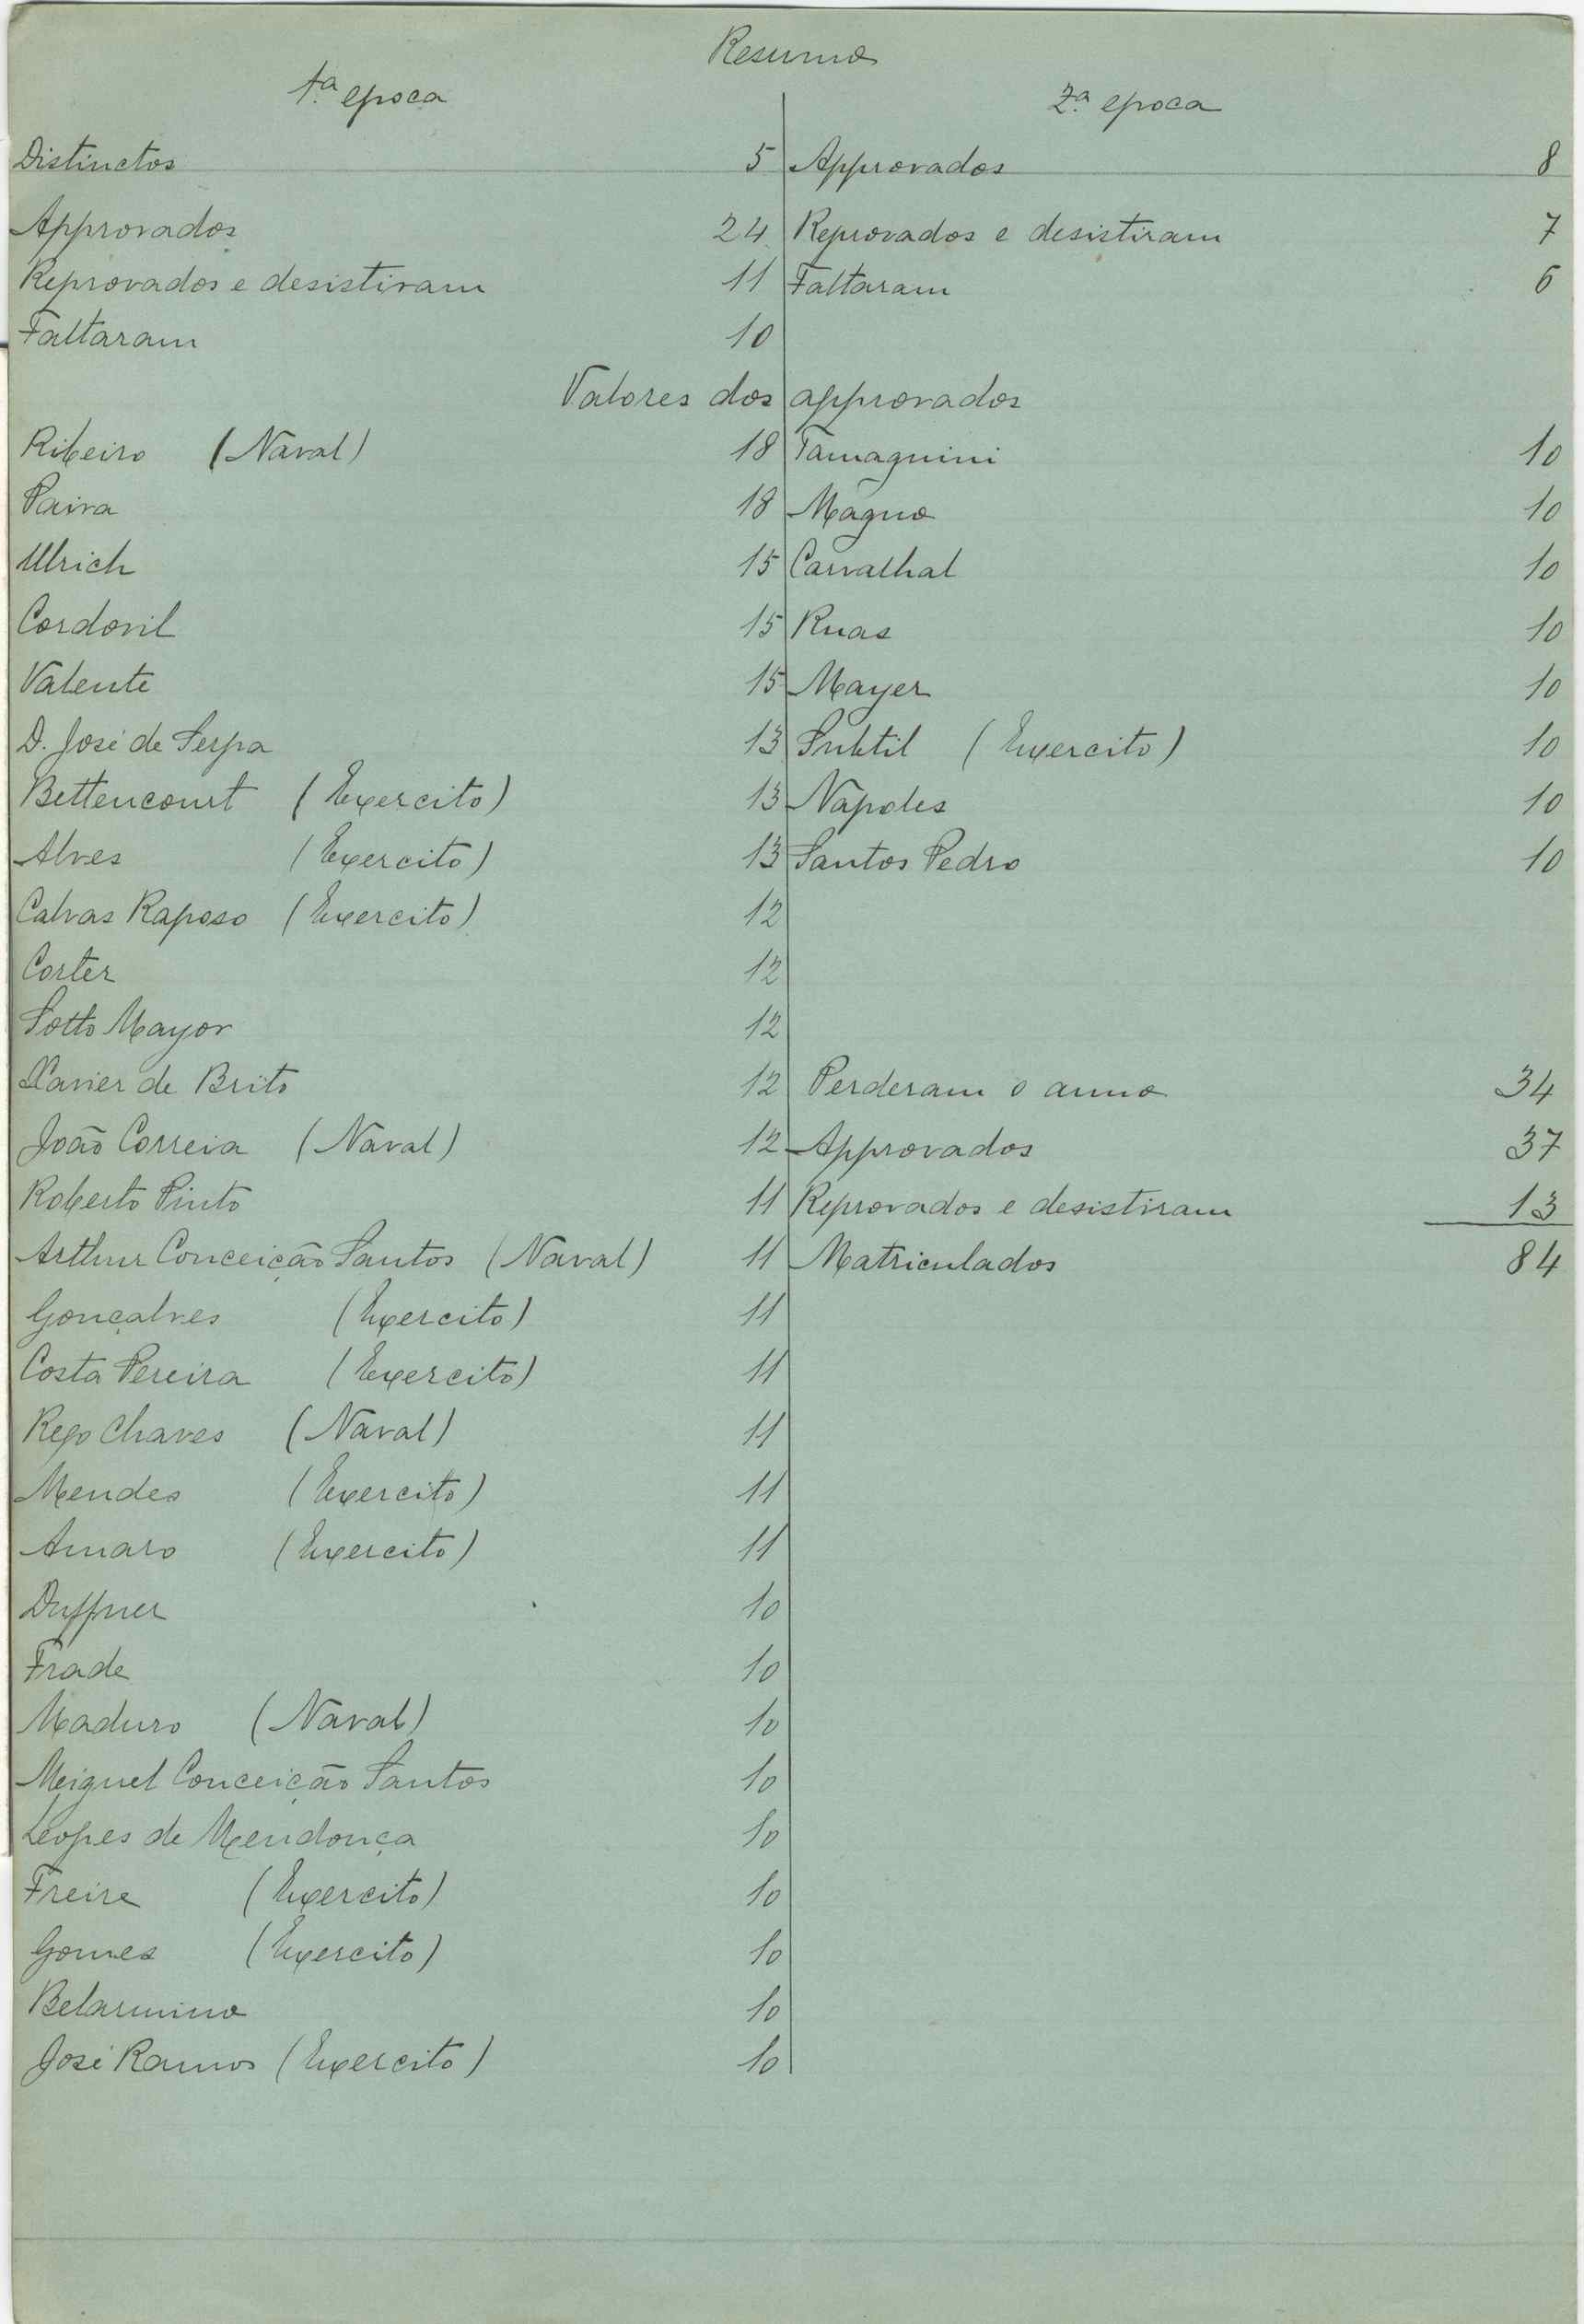 Resumo
1.ª epoca
2.ª epoca
Distinctos 5 Approvados 8
Approvados 24 Reprovados e desistiram 7
Reprovados e desistiram 11 Faltaram 6
Faltaram 10
Valores dos approvados
Ribeiro (Naval) 18 Tamagnini 10
Paiva 18 Magno 10
Ulrich 15 Carvalhal 10
Cordovil 15 Ruas 10
Valente 15 Mayer 10
D. José de Serpa 13 Subtil (Exercito) 10
Bettencourt (Exercito) 13 Napoles 10
Alves (Exercito) 13 Santos Pedro 10
Calvas Raposo (Exercito) 12
Corter 12
Sotto Mayor 12
Xavier de Brito 12 Perderam o anno 34
João Correia (Naval) 12 Approvados 37
Roberto Pinto 11 Reprovados e desistiram 13
Arthur Conceição Santos (Naval) 11 Matriculados 84
Gonçalves (Exercito) 11
Costa Pereira (Exercito) 11
Rego Chaves (Naval) 11
Mendes (Exercito) 11
Amaro (Exercito) 11
Duffner 10
Frade 10
Maduro (Naval) 10
Miguel Conceição Santos 10
Lopes de Mendonça 10
Freire (Exercito) 10
Gomes (Exercito) 10
Belarmino 10
José Ramos (Exercito) 10